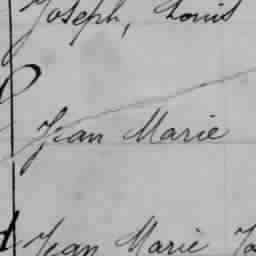 Joseph, Louis
Jean Marie
Jean Marie